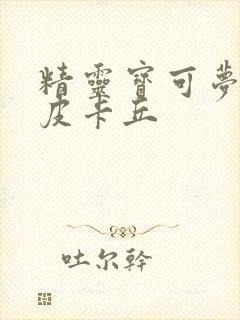 精靈寶可夢
皮卡丘
吐尔幹